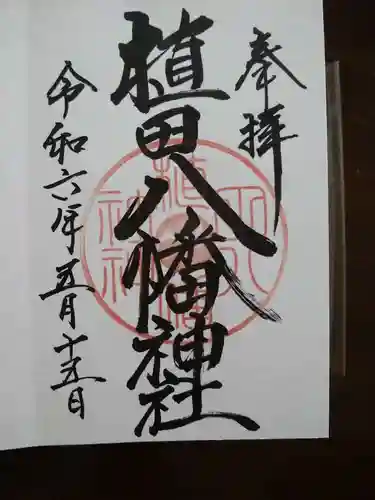 奉拝
植田八幡神社
令和六年五月十五日